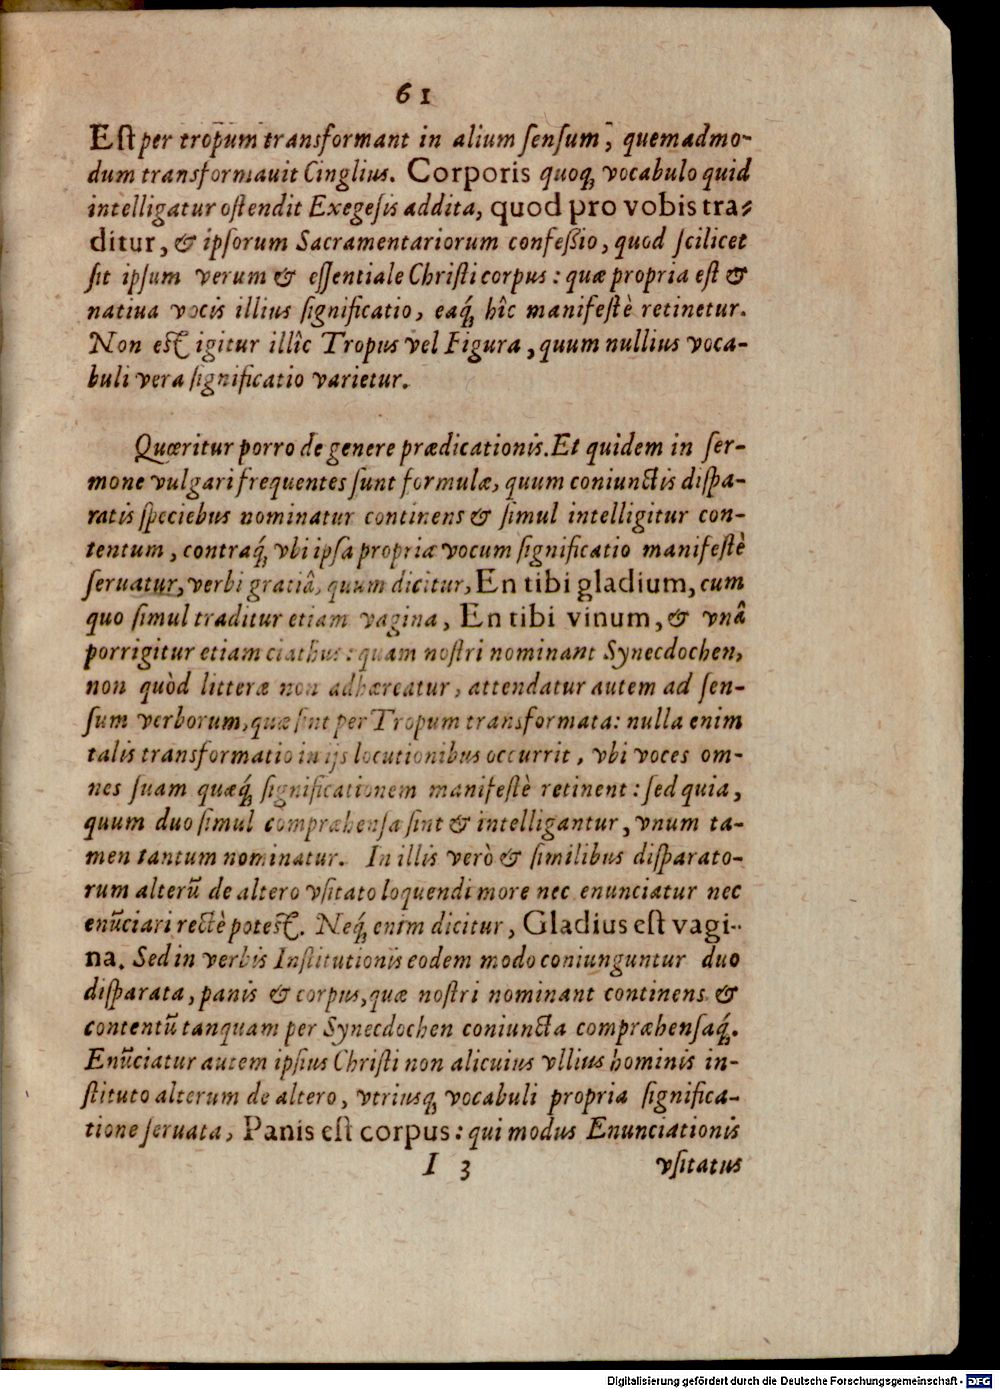 61
Eſt per tropum transformant in alium ſenſum, quemadmo-
dum transformauit Cinglius. Corporis quoq́ vocabulo quid
intelligatur oſtendit Exegeſis addita, quod pro vobis tra-
ditur, & ipſorum Sacramentariorum confeßio, quod ſcilicet
ſit ipſum verum & eſſentiale Chriſti corpus: quæ propria eſt &
natiua vocis illius ſignificatio, eaq́ hîc manifeſtè retinetur.
Non est igitur illîc Tropus vel Figura, quum nullius voca-
buli vera ſignificatio varietur.
Quæritur porro de genere prædicationis. Et quidem in ſer-
mone vulgari frequentes ſunt formulæ, quum coniunctis diſpa-
ratis ſpeciebus nominatur continens & ſimul intelligitur con-
tentum, contraq́ vbi ipſa propria vocum ſignificatio manifeſtè
ſeruatur, verbi gratiâ, quum dicitur, En tibi gladium, cum
quo ſimul traditur etiam vagina, En tibi vinum, & vnâ
porrigitur etiam ciathus: quam noſtri nominant Synecdochen,
non quòd litteræ non adhæreatur, attendatur autem ad ſen-
ſum verborum, quæ ſint per Tropum transformata: nulla enim
talis transformatio in ijs locutionibus occurrit, vbi voces om-
nes ſuam quæq́ ſignificationem manifeſtè retinent: ſed quia,
quum duo ſimul compræhenſa ſint & intelligantur, vnum ta-
men tantum nominatur. In illis verò & ſimilibus diſparato-
rum alterũ de altero vſitato loquendi more nec enunciatur nec
enũciari rectè potest. Neq́ enim dicitur, Gladius eſt vagi-
na. Sed in verbis Inſtitutionis eodem modo coniunguntur duo
diſparata, panis & corpus, quæ noſtri nominant continens &
contentũ tanquam per Synecdochen coniuncta compræhenſaq́.
Enũciatur autem ipſius Chriſti non alicuius vllius hominis in-
ſtituto alterum de altero, vtriusq́ vocabuli propria ſignifica-
tione ſeruata, Panis eſt corpus: qui modus Enunciationis
I 3 vſitatus
Digitalisierung gefördert durch die Deutsche Forschungsgemeinschaft - DFG